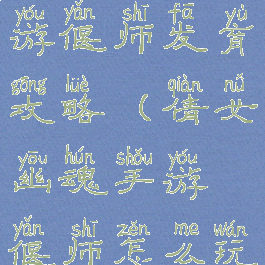 yóu yǎn shī fā yù
游偃师发育
gōng lüè qiàn nǚ
攻略（倩女
yōu hún shǒu yóu
幽魂手游
yǎn shī zěn me wán
偃师怎么玩